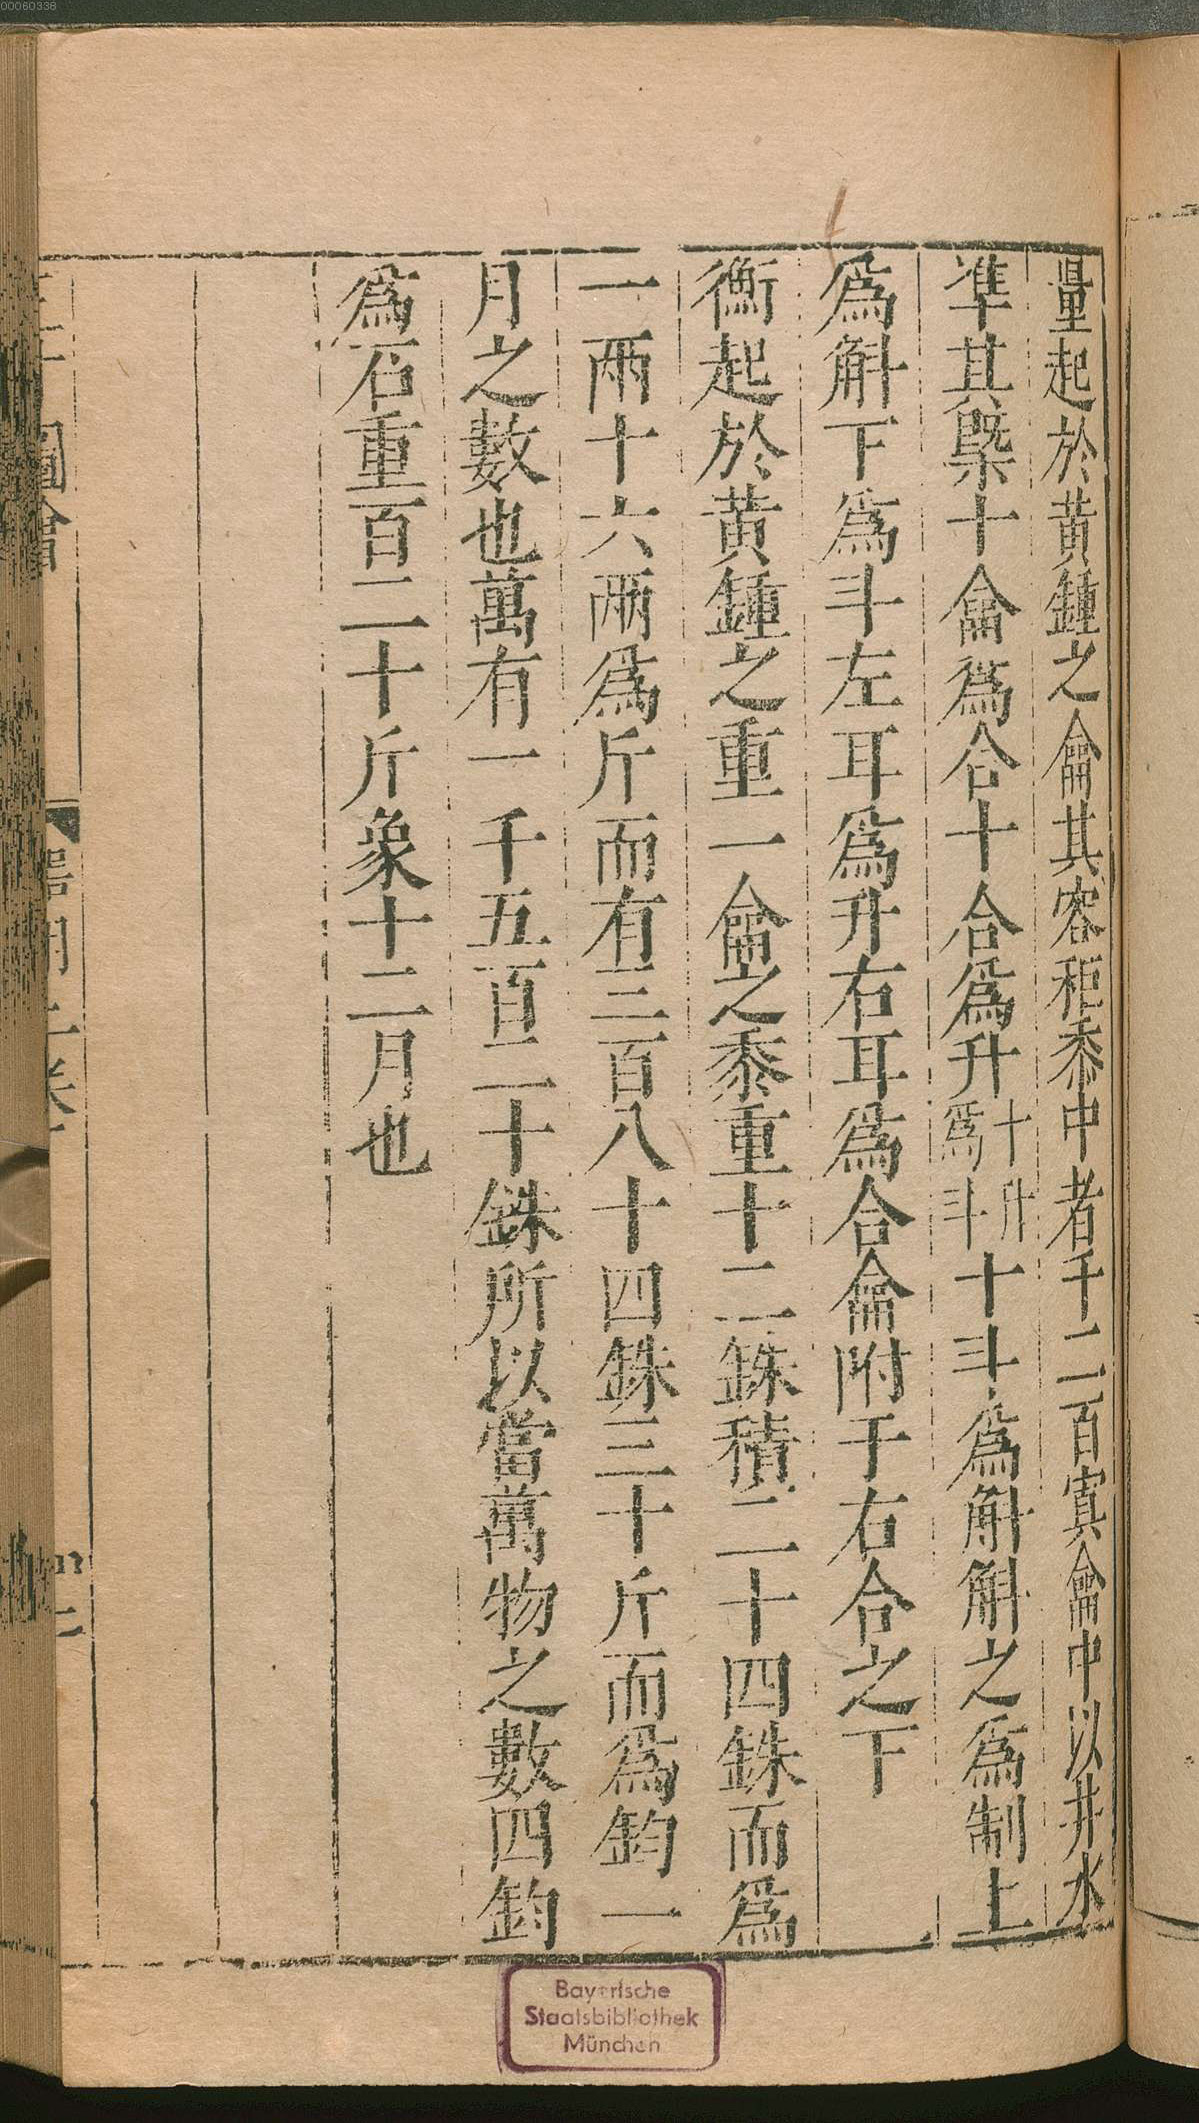 00060338
量起於黃鍾之龠其容秬黍中者千二百實龠中以井水
準其槩十龠爲合十合爲升十升爲斗十斗爲斛斛之爲制上
爲斛下爲斗左耳爲升右耳爲合龠附于右合之下
衡起於黃鍾之重一龠之黍重十二銖積二十四銖而爲
一兩十六兩爲斤而有三百八十四銖三十斤而爲鈞一
月之數也萬有一千五百二十銖所以當萬物之數四鈞
爲石重百二十斤象十二月也
圖會
Bayerische
Staatsbibliothek
München